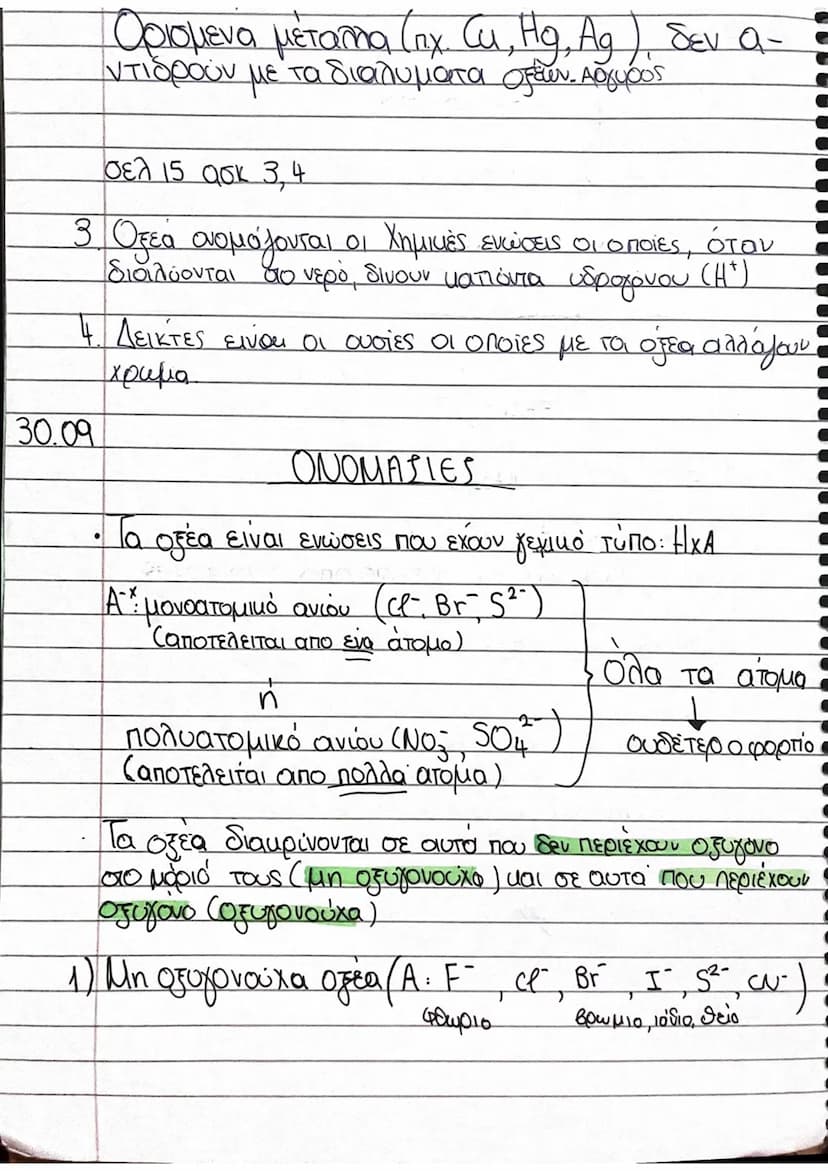 Ορισμένα μέταλλα (πχ. Cu, Hg, Ag), δεν α-
ντιδρούν με τα διαλύματα οξέων. Αργυρός
σελ 15 ασκ 3,4
3. Οξέα ονομάζονται οι χημικές ενώσεις οι οποίες, όταν
διαλύονται στο νερό, δίνουν κατιόντα υδρογόνου (H⁺)
4. Δείκτες είναι οι ουσίες οι οποίες με τα οξέα αλλάζουν
χρωμα
30.09
ΟΝΟΜΑΣΙΕΣ
· Τα οξέα είναι ενώσεις που έχουν γενικό τύπο: HxA
A⁻ˣ: μονοατομικό ανιόν (Cl⁻, Br⁻, S²⁻)
(αποτελείται απο ένα άτομο)
ή
Όλα τα άτομα
↓
ουδέτερο φορτίο
πολυατομικό ανιόν (NO₃⁻, SO₄²⁻)
(αποτελείται απο πολλα άτομα)
· Τα οξέα διακρίνονται σε αυτά που δεν περιέχουν οξυγόνο
στο μόριό τους (μη οξυγονούχα) και σε αυτά που περιέχουν
οξυγόνο (οξυγονούχα)
1) Μη οξυγονούχα οξέα (A: F⁻, Cl⁻, Br⁻, I⁻, S²⁻, CN⁻)
φθωριο βρωμιο, ιώδιο, θείο